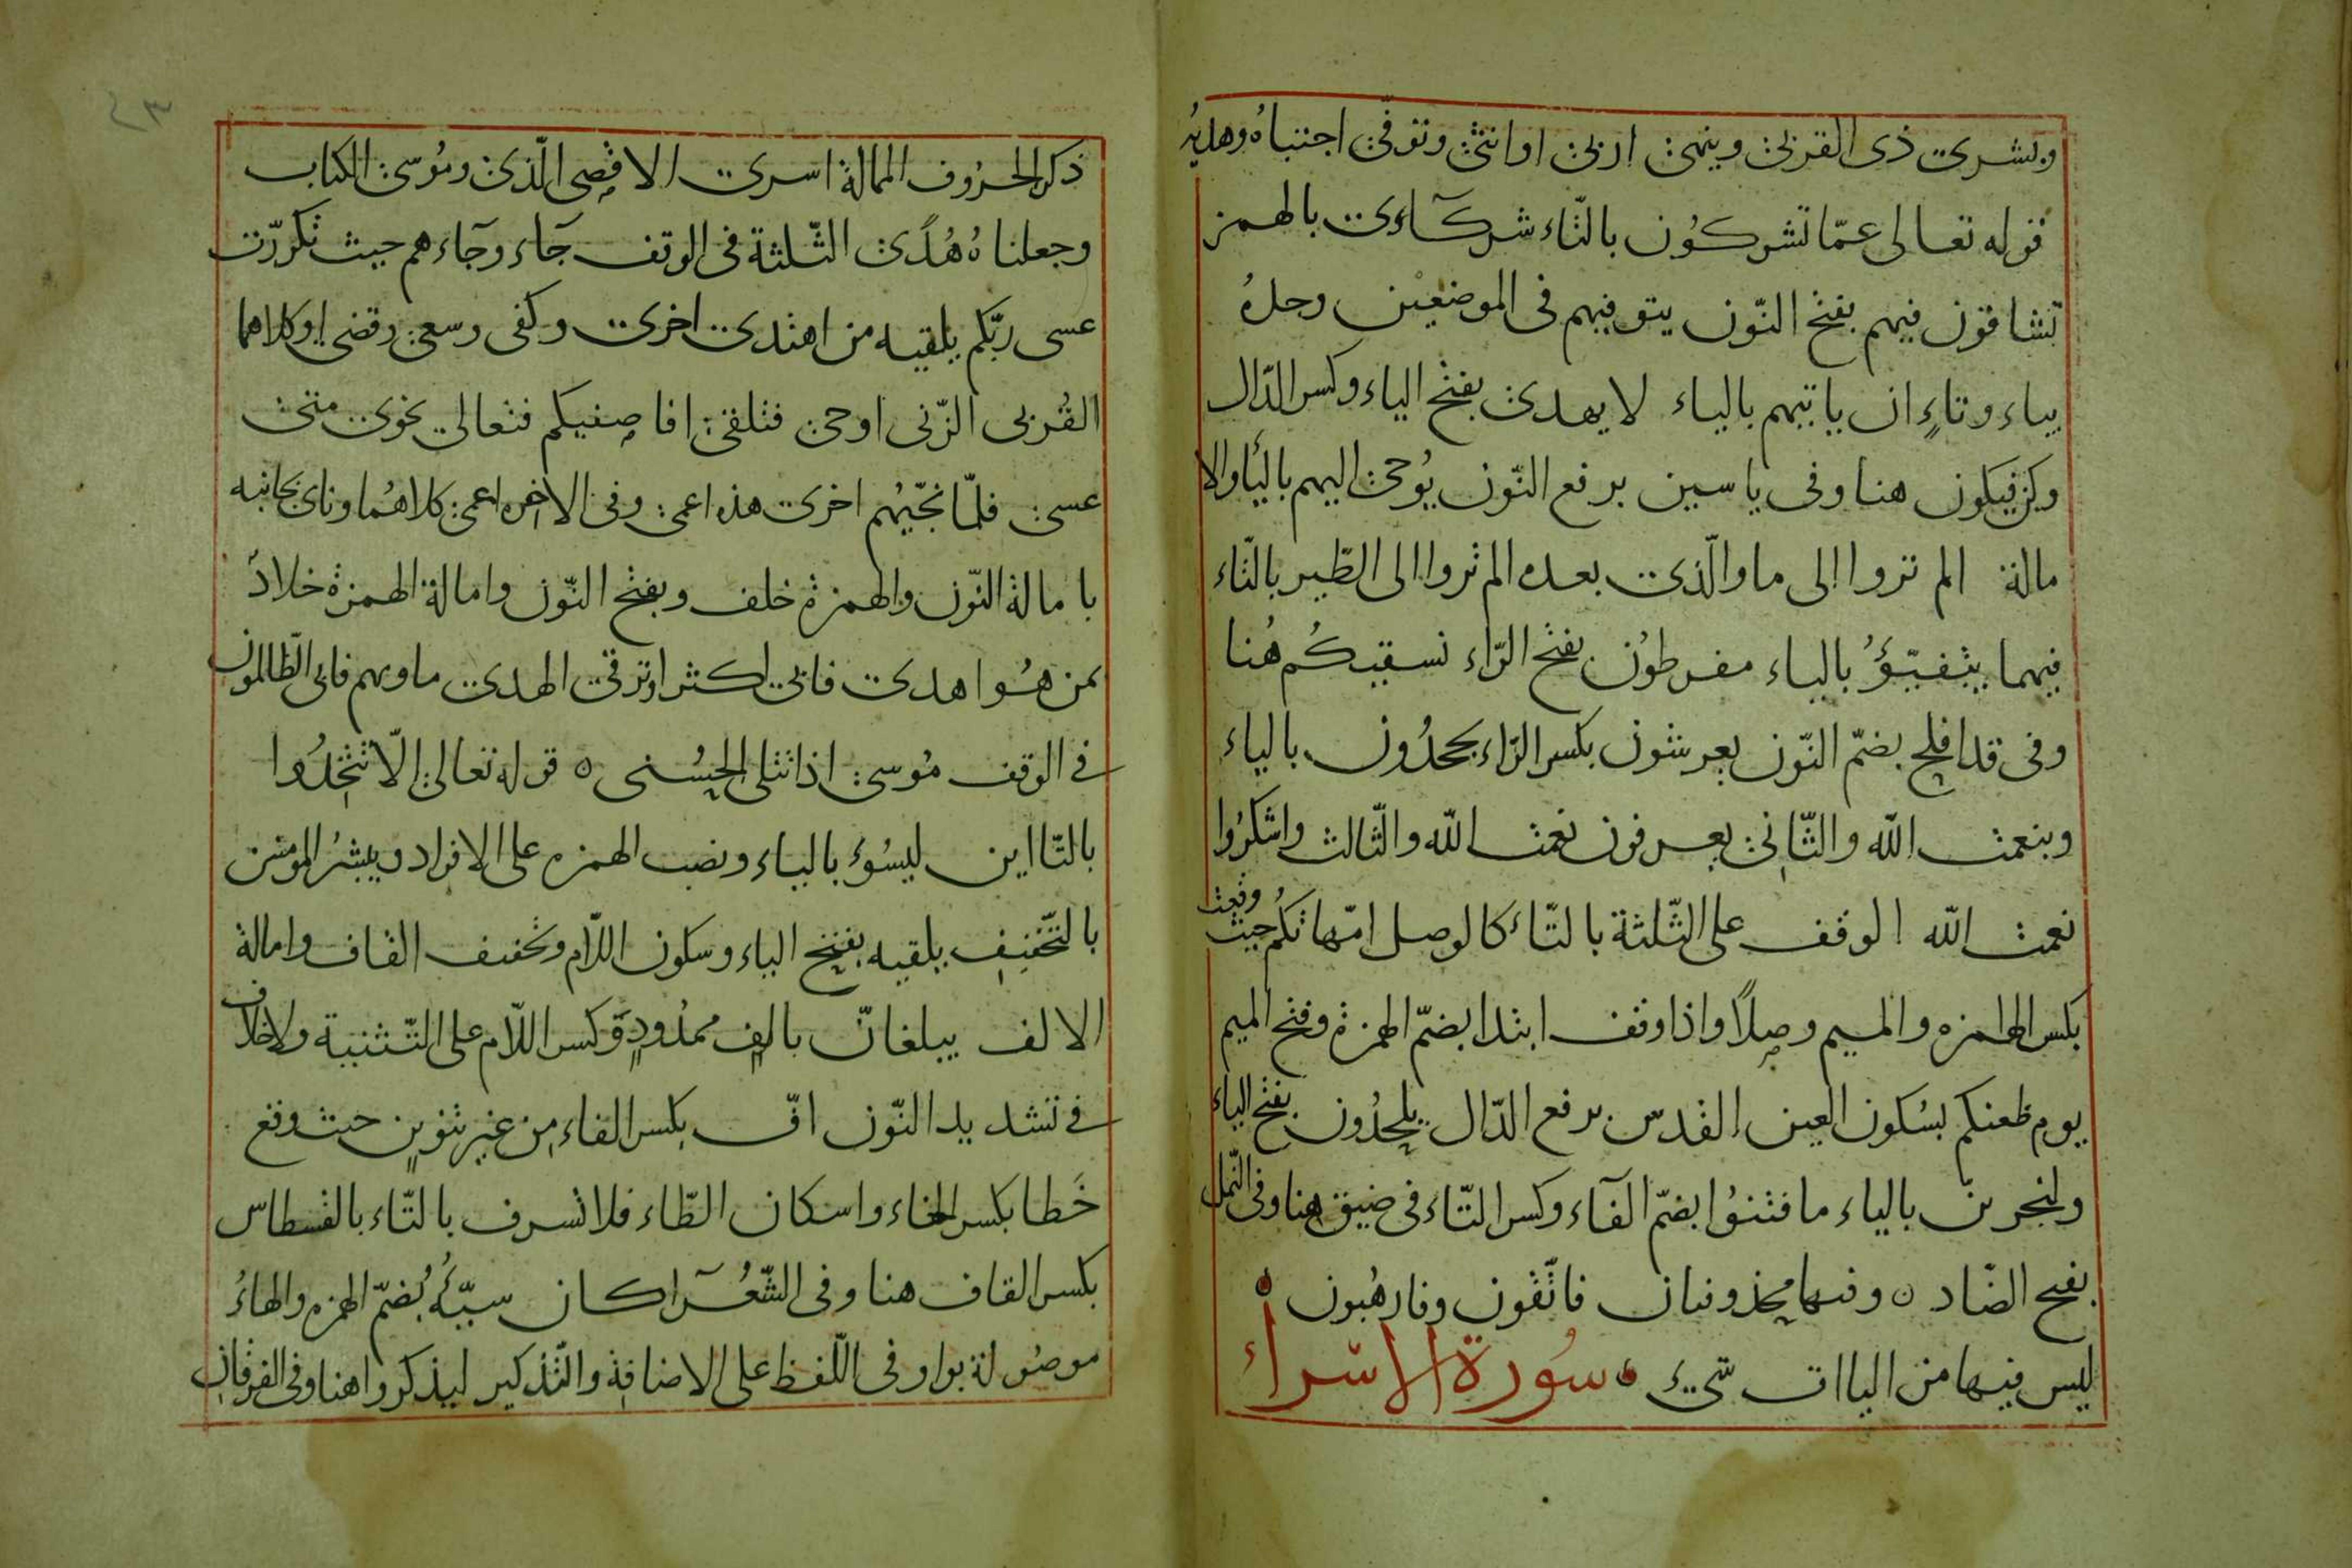 وبشرى ذى القربى وينهى اربى او انثى وتوفى اجتباه وهديه
قوله تعالى عمّا تشركُون بالتّاء شركآءى بالهمز
تشاقون فيهم بفتح النّون يتوفيهم فى الموضعين وحلهُ
بياء وتاءٍ ان ياتيهم بالياء لا يهدى بفتح الياء وكسر الدّال
وكن فيكون هنا وفى ياسين برفع النّون يُوحى اليهم بالياَ والا
مالة الم تروا الى ما والّذى بعده الم تروا الى الطّير بالتّاء
فيهما يتفيّؤُ بالياء مفرطوُن بفتح الرّاء نسقيكُم هُنا
وفى قد افلح بضمّ النّون يعرشون بكسر الرّاء يجحدُون بالياء
وبنعمت اللّه والثّانى يعرفون نعمت اللّه والثّالث واشكرُوا
نعمت اللّه الوقف على الثّلثة بالتّاء كالوصل امّهاتكُم حيث وقعت
بكسر الهمزه والميم وصلاً واذا وقف ابتدا بضمّ الهمزة وفتح الميم
يوم ظعنكم بسُكون العين القدس برفع الدّال يلحدُون بفتح الياء
ولنجزين بالياء ما فتنوُا بضمّ الفآء وكسر التّاء فى ضيق هنا وفى النّمل
بفتح الضّاد ٥ وفيها محذوفتان فاتّقون وفارهُبون
ليس فيها من الياات شىء سُورة الاسراء
ذكر الحرُوف الممالة اسرى الاقصى الّذى ومُوسى الكتاب
وجعلناهُ هُدًى الثّلثة فى الوقف جَآء وجَآءهم حيث تكررّت
عسى ربّكم يلقيه من اهتدى اخرى وكفى وسعى وقضى او كلاهما
القُربى الزّنى اوحى فتلقى افاصفيكم فتعالى نجوى متى
عسى فلمّا نجّيهُم اخرى هذه اعمى وفى الاخره اعمى كلاهُما وناى بجانبه
بامالة النّون والهمزة خلف وبفتح النّون وامالة الهمزة خلادٌ
بمن هُو اهدى فابى اكثر او ترقى الهدى ماويهم فابى الظّالمون
فى الوقف مُوسى اذا تتلى الحُسنى ٥ قوله تعالى الّا تتّخذُوا
بالتّااين ليسُوءَ بالياء ونصب الهمزه على الافراد ويبشرُ المومنين
بالتّخفيف يلقيه بفتح الياء وسكون اللّام وتخفيف القاف وامالة
الالف يبلغانّ بالفٍ ممدُودةٍ وكسر اللّام على التّثنية ولا خلاف
فى تشديد النّون افّ بكسر الفاء من غير تنوينٍ حيث وقع
خَطا بكسر الخاء واسكان الطّاء فلا تسرف بالتّاء بالقسطاس
بكسر القاف هنا وفى الشّعُرآ كان سيّئُهُ بُضمّ الهمزه والهاءُ
موصُولة بواو فى اللّفظ على الاضافة والتّذكير ليذكروا هنا وفى الفرقان